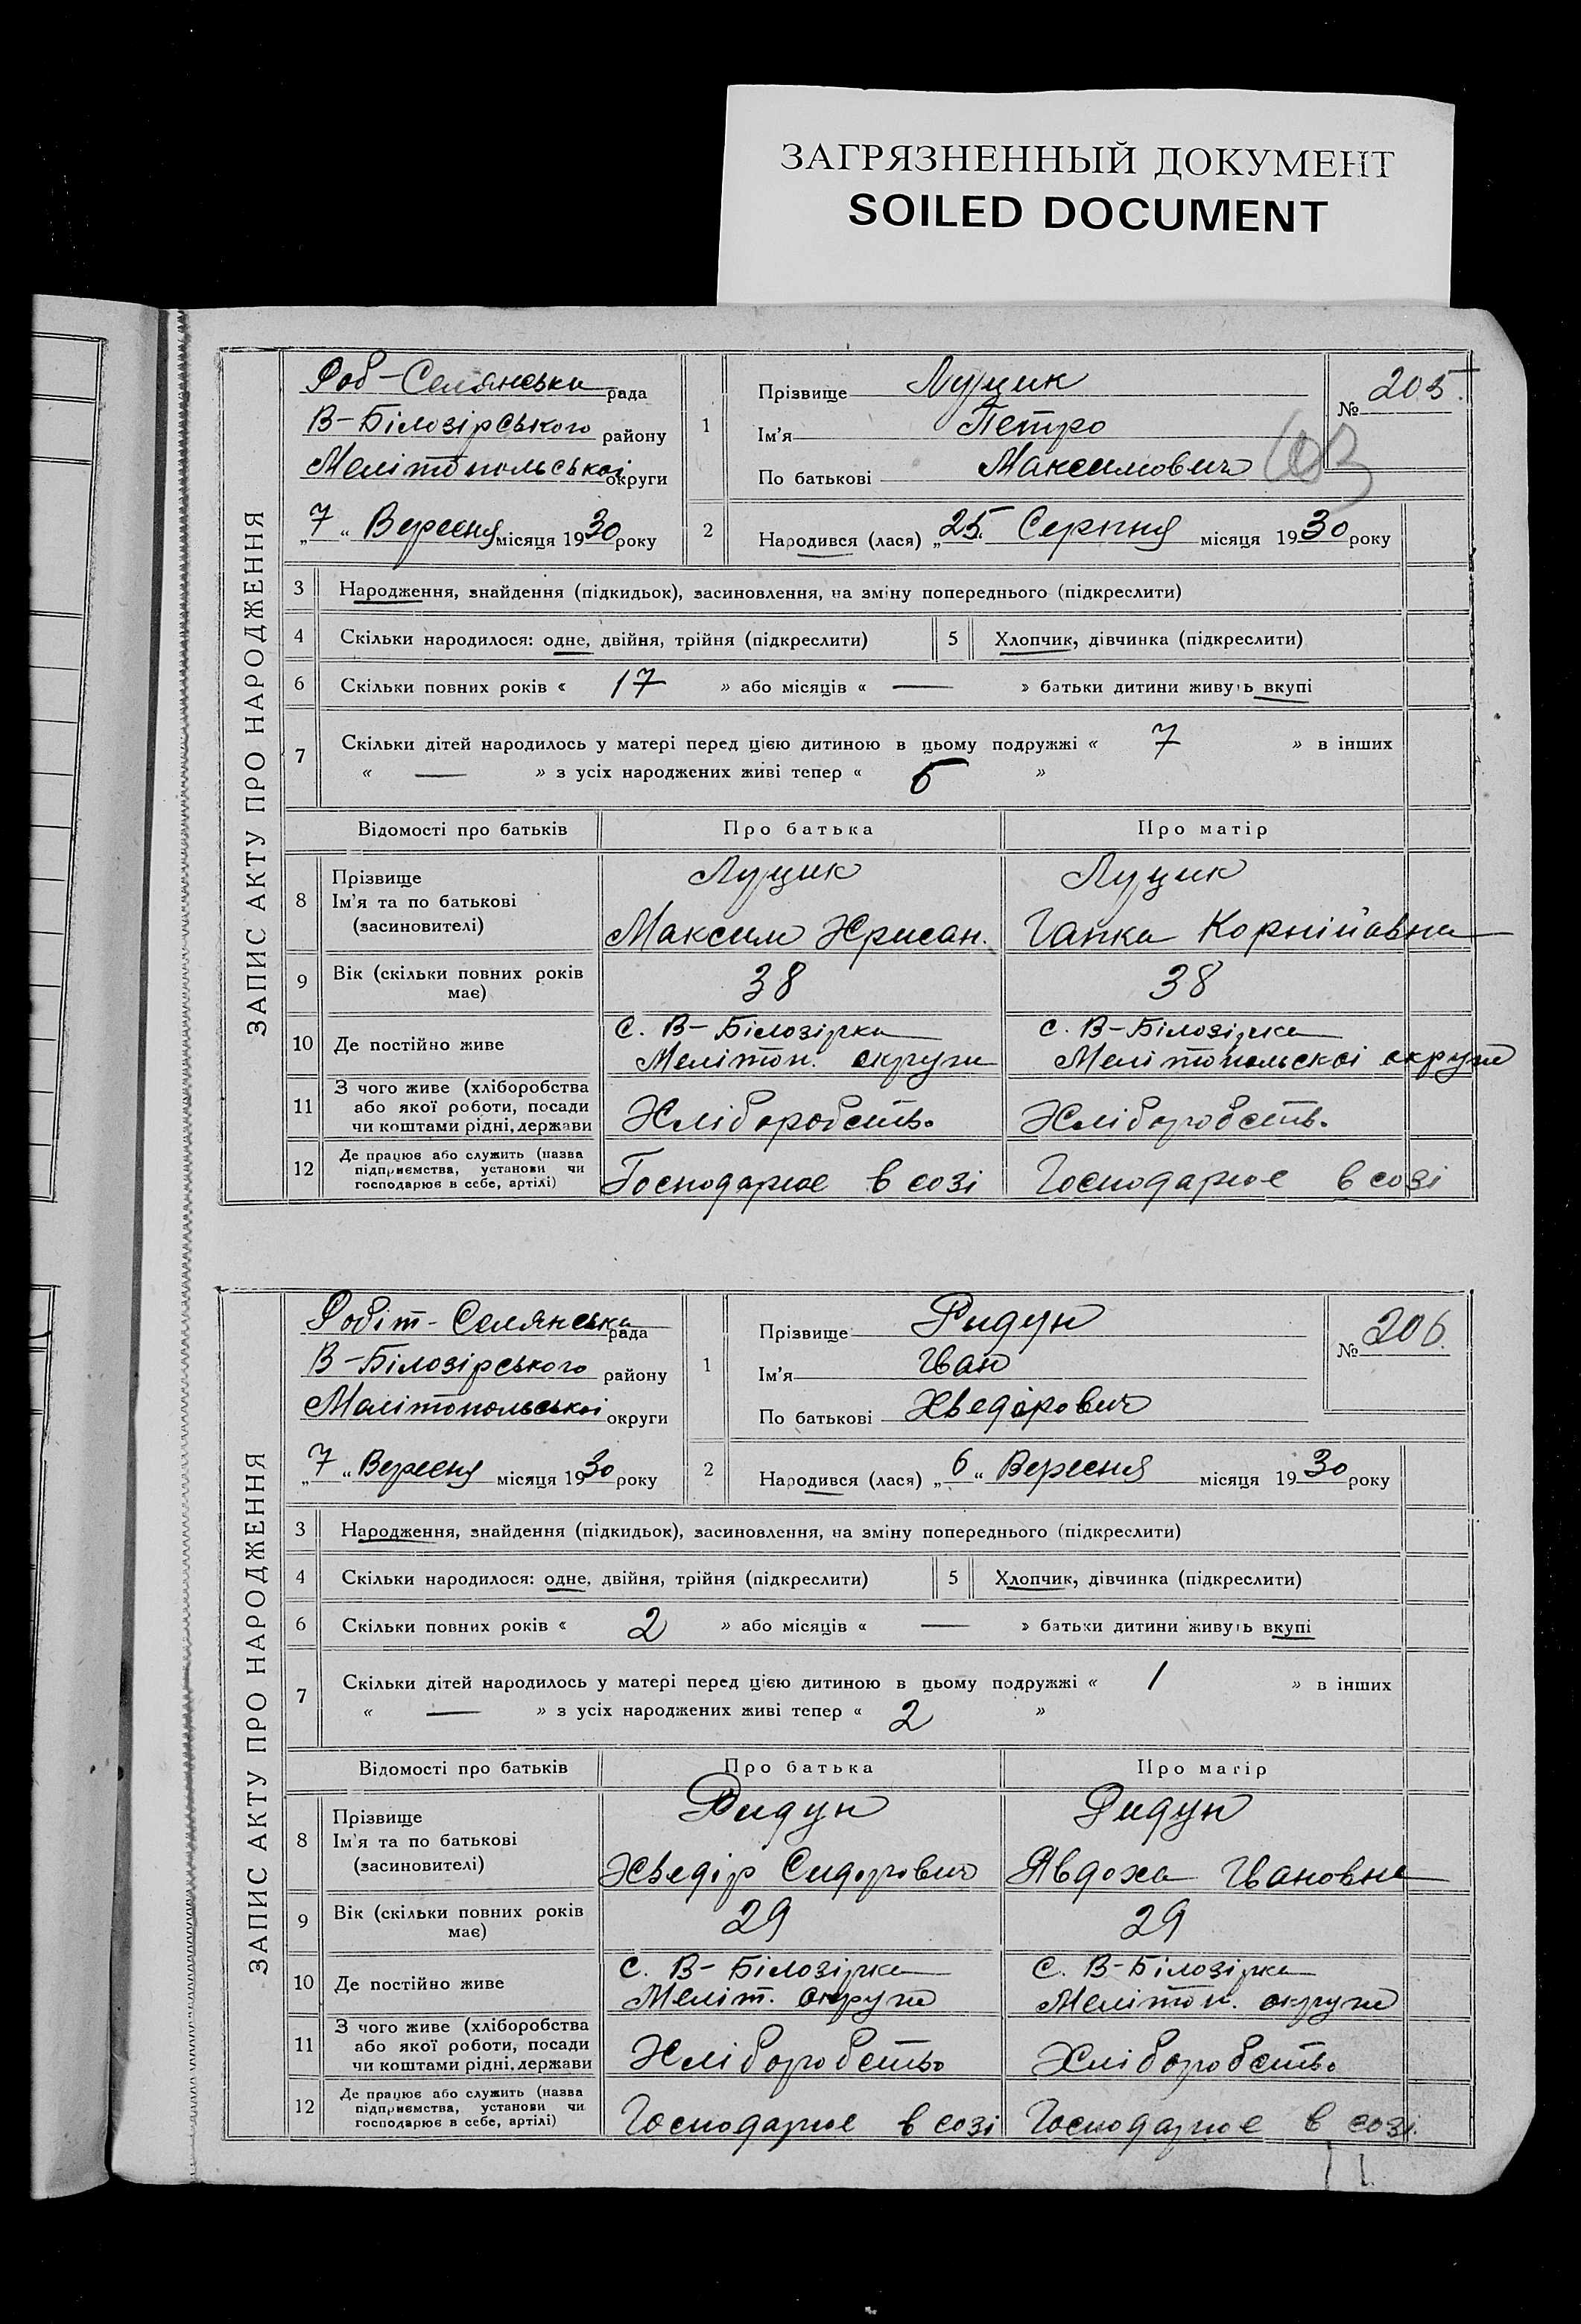 ЗАГРЯЗНЕННЫЙ ДОКУМЕНТ
SOILED DOCUMENT
ЗАПИС АКТУ ПРО НАРОДЖЕННЯ
Роб-Селянська рада
В-Білозірського району
Мелітопольської округи
„7“ Вересня місяця 1930 року
1
Прізвище Луцик
Ім'я Петро
По батькові Максимович
№ 205.
2 Народився (лася) „25“ Серпня місяця 1930 року
3 Народження, знайдення (підкидьок), засиновлення, на зміну попереднього (підкреслити)
4 Скільки народилося: одне, двійня, трійня (підкреслити) 5 Хлопчик, дівчинка (підкреслити)
6 Скільки повних років « 17 » або місяців « — » батьки дитини живуть вкупі
7 Скільки дітей народилось у матері перед цією дитиною в цьому подружжі « 7 » в інших
« — » з усіх народжених живі тепер « 5 »
Відомості про батьків Про батька Про матір
8 Прізвище Луцик Луцик
Ім'я та по батькові
(засиновителі) Максим Хрисан. Гапка Корнійовна
9 Вік (скільки повних років має) 38 38
10 Де постійно живе с. В-Білозірка с. В-Білозірка
Мелітоп. округи Мелітопольскоі округи
11 З чого живе (хліборобства
або якої роботи, посади
чи коштами рідні, держави Хліборобств. Хліборобств.
12 Де працює або служить (назва
підприємства, установи чи
господарює в себе, артілі) Господарює в созі Господарює в созі
ЗАПИС АКТУ ПРО НАРОДЖЕННЯ
Робіт-Селянська рада
В-Білозірського району
Мелітопольської округи
„7“ Вересня місяця 1930 року
1
Прізвище Ридун
Ім'я Іван
По батькові Хведорович
№ 206.
2 Народився (лася) „6“ Вересня місяця 1930 року
3 Народження, знайдення (підкидьок), засиновлення, на зміну попереднього (підкреслити)
4 Скільки народилося: одне, двійня, трійня (підкреслити) 5 Хлопчик, дівчинка (підкреслити)
6 Скільки повних років « 2 » або місяців « — » батьки дитини живуть вкупі
7 Скільки дітей народилось у матері перед цією дитиною в цьому подружжі « 1 » в інших
« — » з усіх народжених живі тепер « 2 »
Відомості про батьків Про батька Про матір
8 Прізвище Ридун Ридун
Ім'я та по батькові
(засиновителі) Хведір Сидорович Явдоха Івановна
9 Вік (скільки повних років має) 29 29
10 Де постійно живе с. В-Білозірка с. В-Білозірка
Меліт. округи Мелітоп. округи
11 З чого живе (хліборобства
або якої роботи, посади
чи коштами рідні, держави Хліборобств. Хліборобств.
12 Де працює або служить (назва
підприємства, установи чи
господарює в себе, артілі) Господарює в созі Господарює в созі.